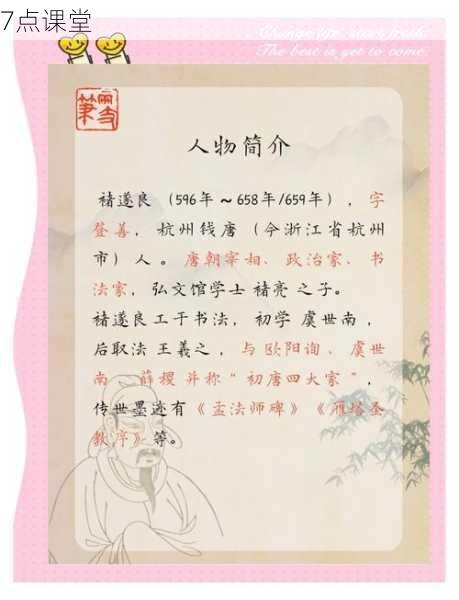 7点课堂
Change life, start fresh.
The best is yet to come.
人物简介
褚遂良（596年～658年/659年），字
登善，杭州钱唐（今浙江省杭州
市）人。唐朝宰相、政治家、书
法家，弘文馆学士褚亮之子。
褚遂良工于书法，初学虞世南，
后取法王羲之，与欧阳询、虞世
南、薛稷并称“初唐四大家”，
传世墨迹有《孟法师碑》《雁塔圣
教序》等。